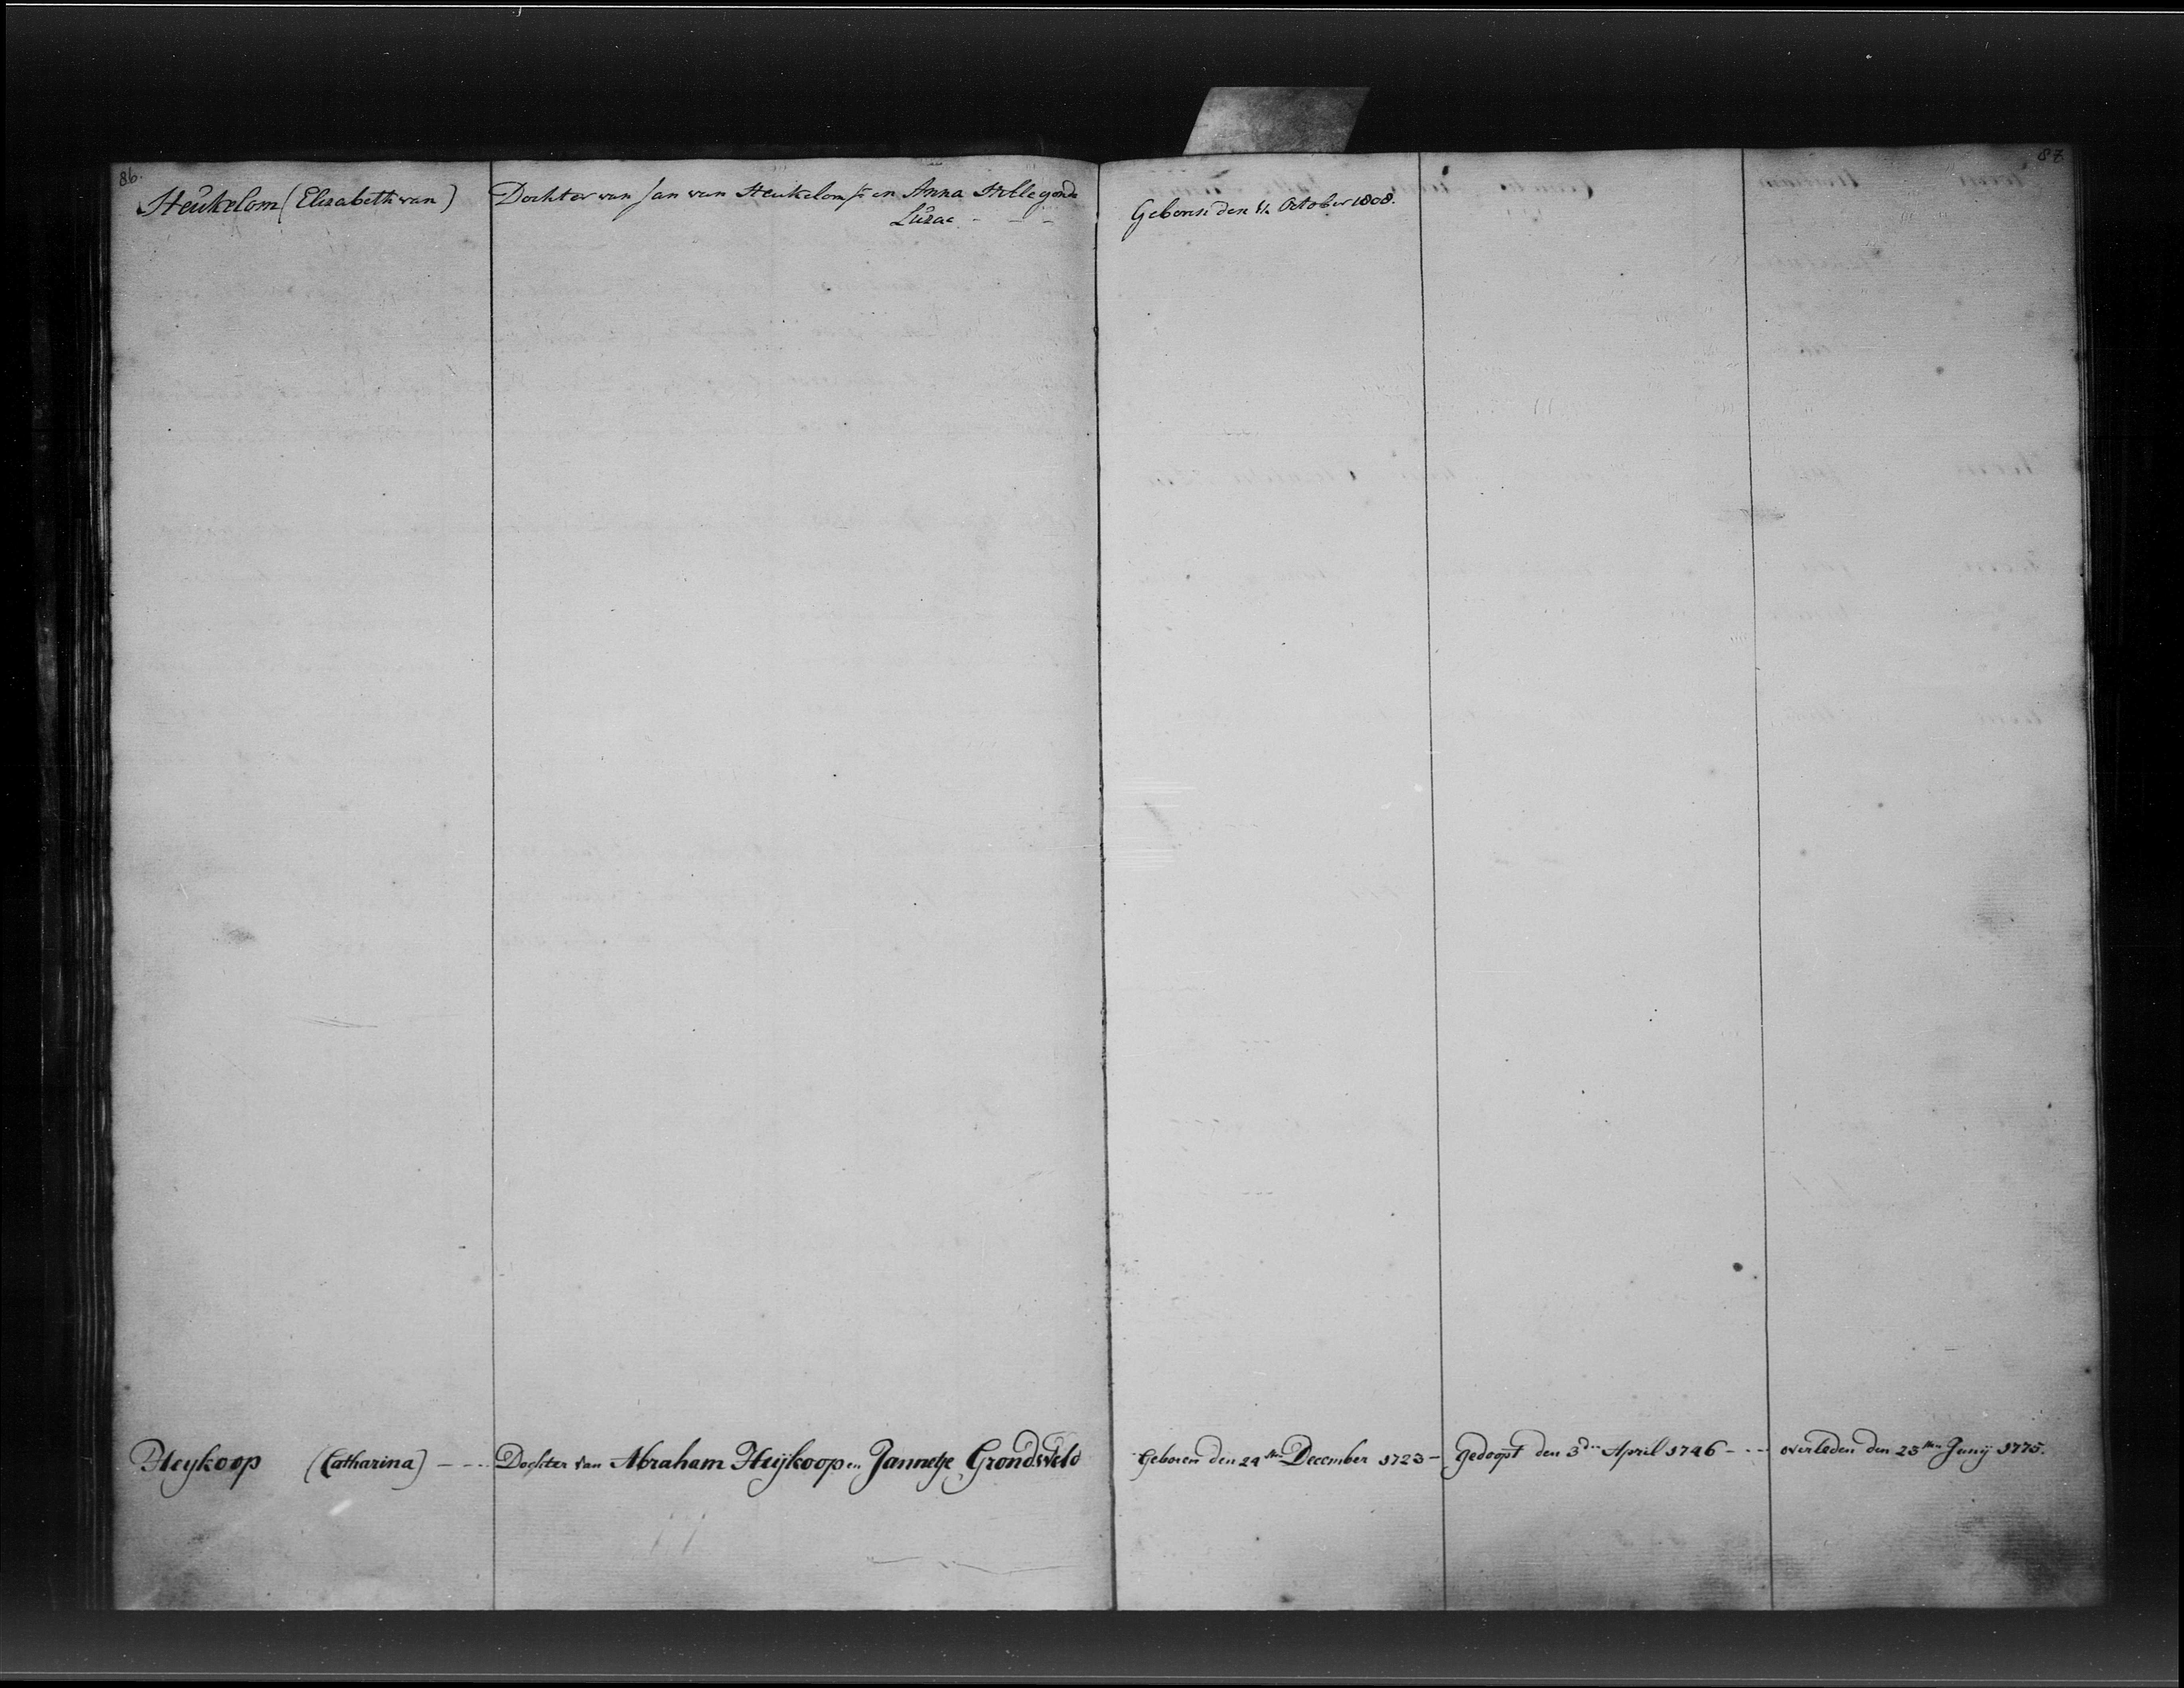 86.
87
Heukelom (Elizabeth van) Dochter van Jan van Heukelom Jr. en Anna Hillegonda Geboren den October 1808.
Luzac. - - -
Heykoop (Catharina) - - - Dochter van Abraham Heijkoop en Jannetje Grondsveld Geboren den 24sten December 1723 - gedoopt den 3den April 1746 - - - overleden den 25sten Junij 1775.